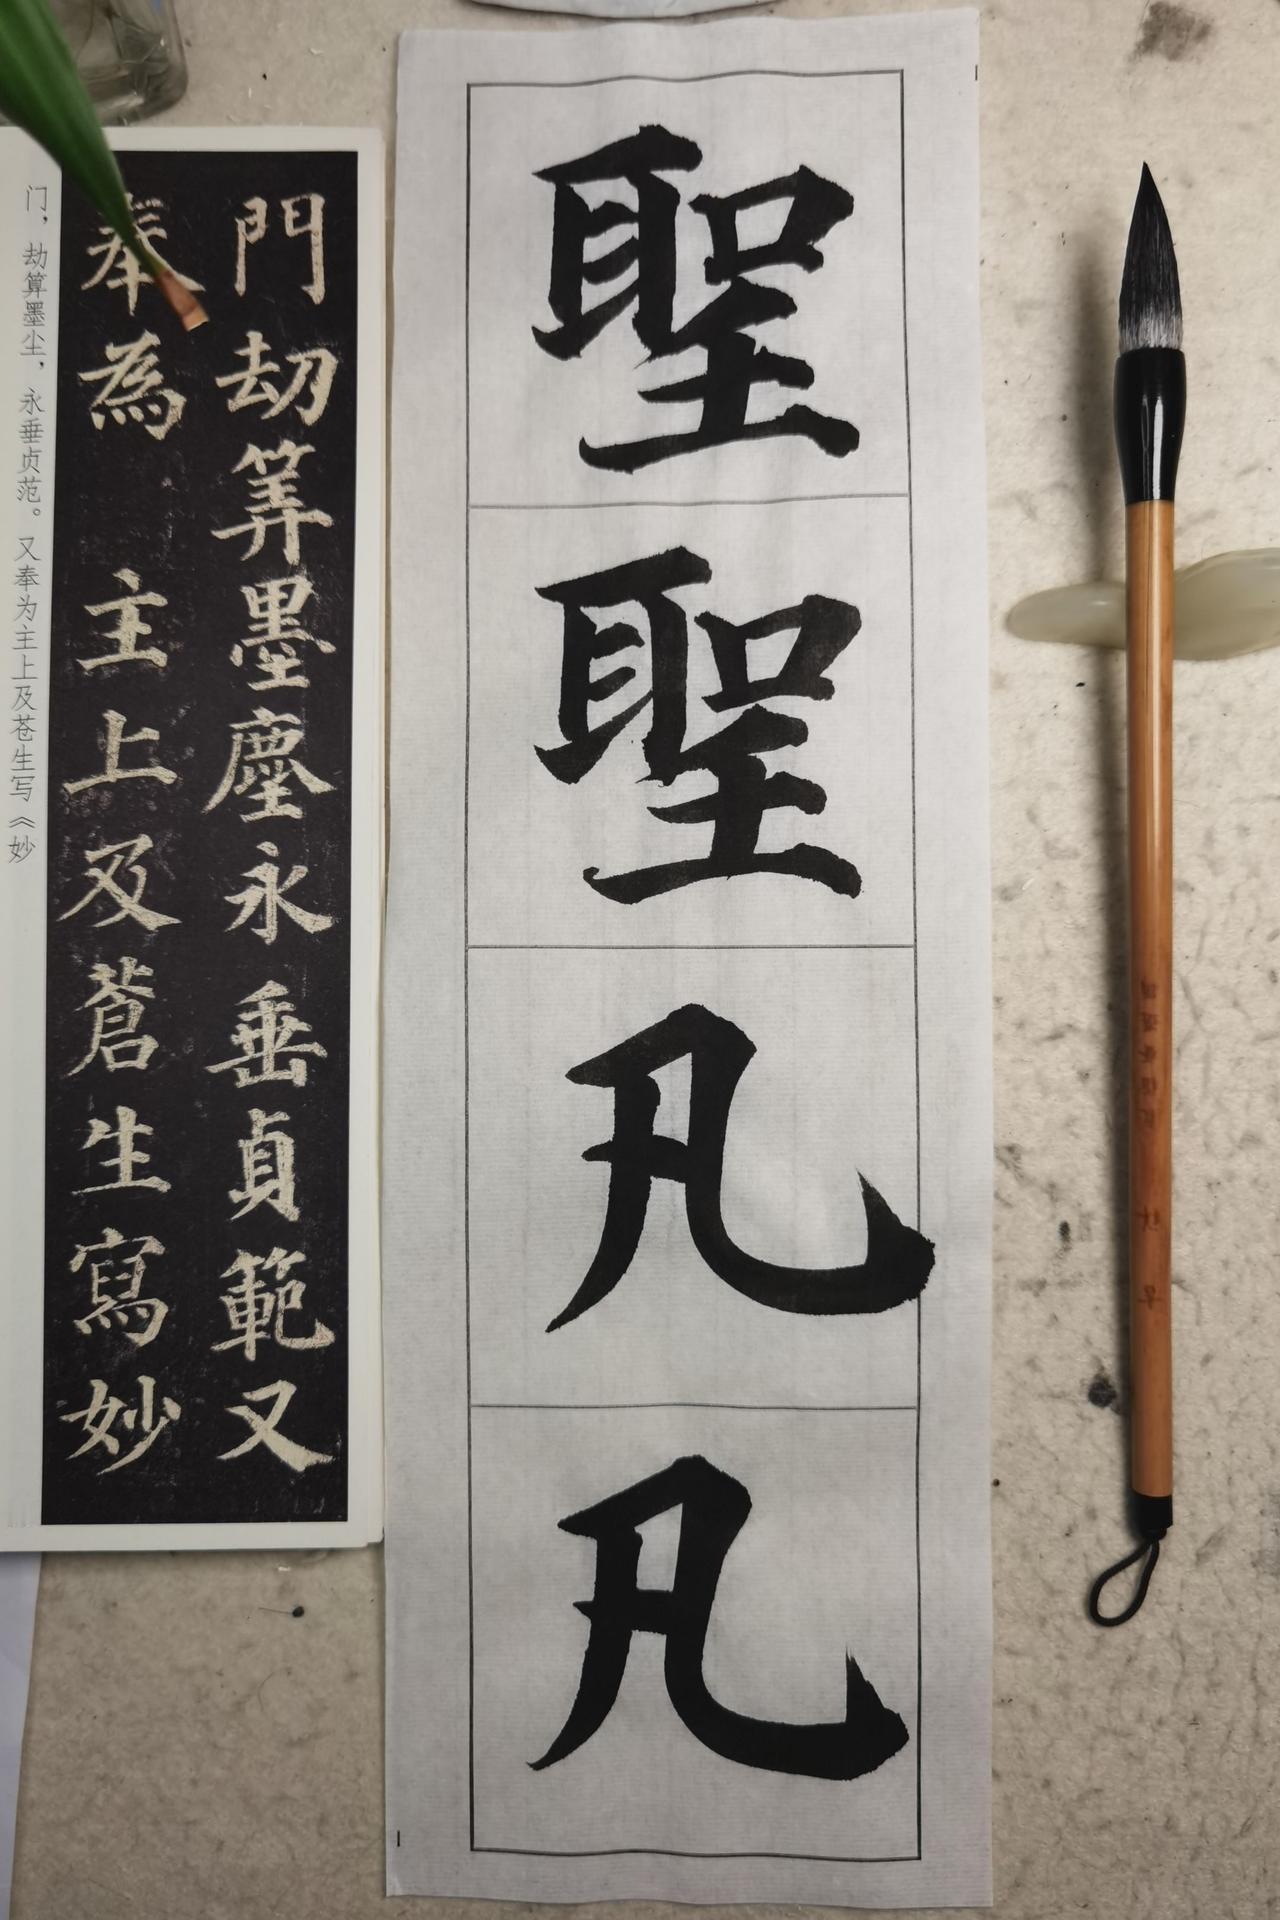 聖聖凡凡
門劫筭墨塵永垂貞範又
奉為主上及蒼生寫妙
门，劫算墨尘，永垂贞范。又奉为主上及苍生写《妙